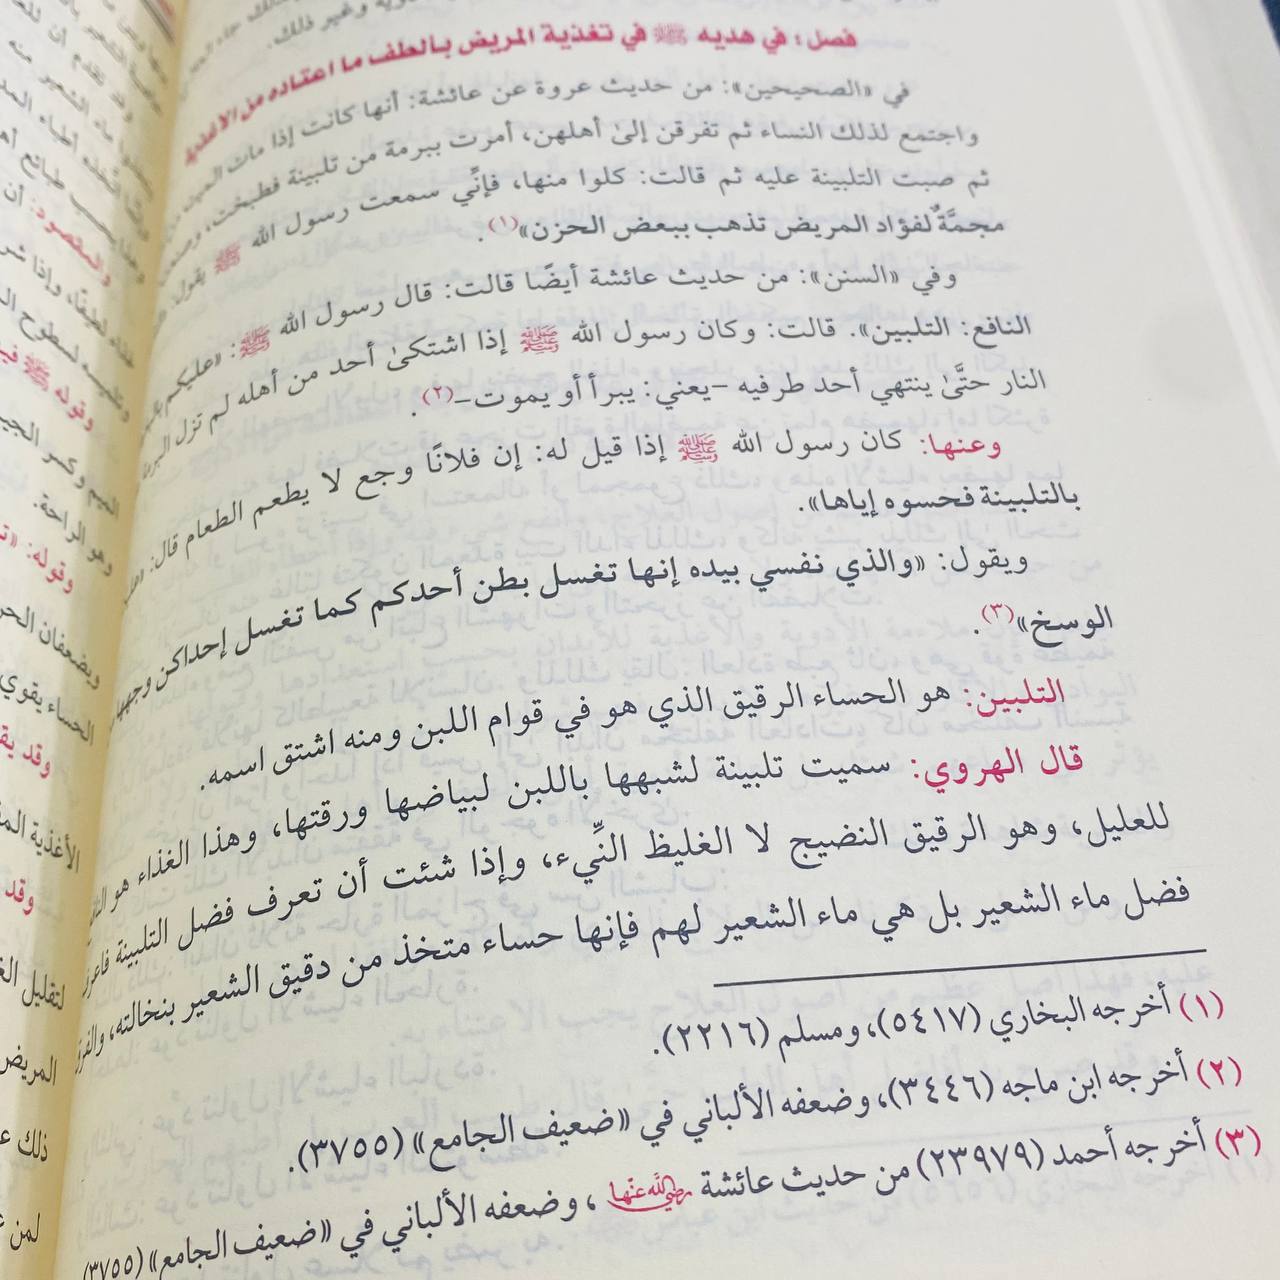 وغير ذلك.
فصل: في هديه ﷺ في تغذية المريض بالطف ما اعتاده من الأغذية
في «الصحيحين»: من حديث عروة عن عائشة: أنها كانت إذا مات الميت
واجتمع لذلك النساء ثم تفرقن إلىٰ أهلهن، أمرت ببرمة من تلبينة فطبخت، وصنعت
ثم صبت التلبينة عليه ثم قالت: كلوا منها، فإنِّي سمعت رسول الله ﷺ يقول:
مجمَّةٌ لفؤاد المريض تذهب ببعض الحزن»(١).
وفي «السنن»: من حديث عائشة أيضًا قالت: قال رسول الله ﷺ: «عليكم
النافع: التلبين». قالت: وكان رسول الله ﷺ إذا اشتكىٰ أحد من أهله لم تزل البرمة
النار حتَّىٰ ينتهي أحد طرفيه -يعني: يبرأ أو يموت-(٢).
وعنها: كان رسول الله ﷺ إذا قيل له: إن فلانًا وجع لا يطعم الطعام قال:
بالتلبينة فحسوه إياها».
ويقول: «والذي نفسي بيده إنها تغسل بطن أحدكم كما تغسل إحداكن وجهها
الوسخ»(٣).
التلبين: هو الحساء الرقيق الذي هو في قوام اللبن ومنه اشتق اسمه.
قال الهروي: سميت تلبينة لشبهها باللبن لبياضها ورقتها، وهذا الغذاء هو النافع
للعليل، وهو الرقيق النضيج لا الغليظ النِّيء، وإذا شئت أن تعرف فضل التلبينة فاعرف
فضل ماء الشعير بل هي ماء الشعير لهم فإنها حساء متخذ من دقيق الشعير بنخالته، والفرق
(١) أخرجه البخاري (٥٤١٧)، ومسلم (٢٢١٦).
(٢) أخرجه ابن ماجه (٣٤٤٦)، وضعفه الألباني في «ضعيف الجامع» (٣٧٥٥).
(٣) أخرجه أحمد (٢٣٩٧٩) من حديث عائشة رضي الله عنها، وضعفه الألباني في «ضعيف الجامع» (٣٧٥٥)
والمقصود: أن
وهو الراحة.
وقوله:
ويضعفان
الحساء يقوي
الأغذية
وقد
لتقليل
المريض
ذلك
لمن